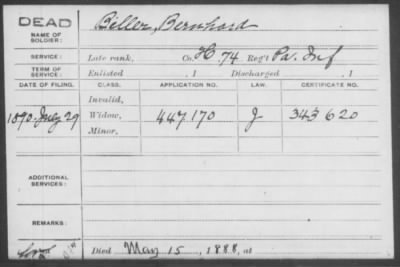 DEAD
NAME OF SOLDIER: Biller, Bernhard
SERVICE: Late rank, Co. H. 74 Reg't Pa. Inf
TERM OF SERVICE: Enlisted , 1 Discharged , 1
DATE OF FILING. CLASS. APPLICATION NO. LAW. CERTIFICATE NO.
Invalid,
1890. July 29 Widow, 447.170 J 343620
Minor,
ADDITIONAL SERVICES:
REMARKS:
Died May 15, 1888, at